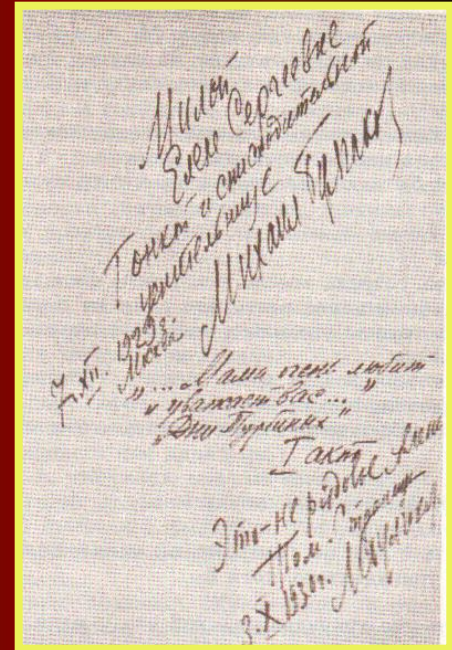 Милой
Елене Сергеевне
Тонкой и снисходительной
ценительнице
Михаил Булгаков
7.XII.1929 г.
Москва
„... Мама очень любит
и уважает вас..."
„Дни Турбиных"
I акт
Это - не рядовые
3.X.1930 г.
М. Булгаков